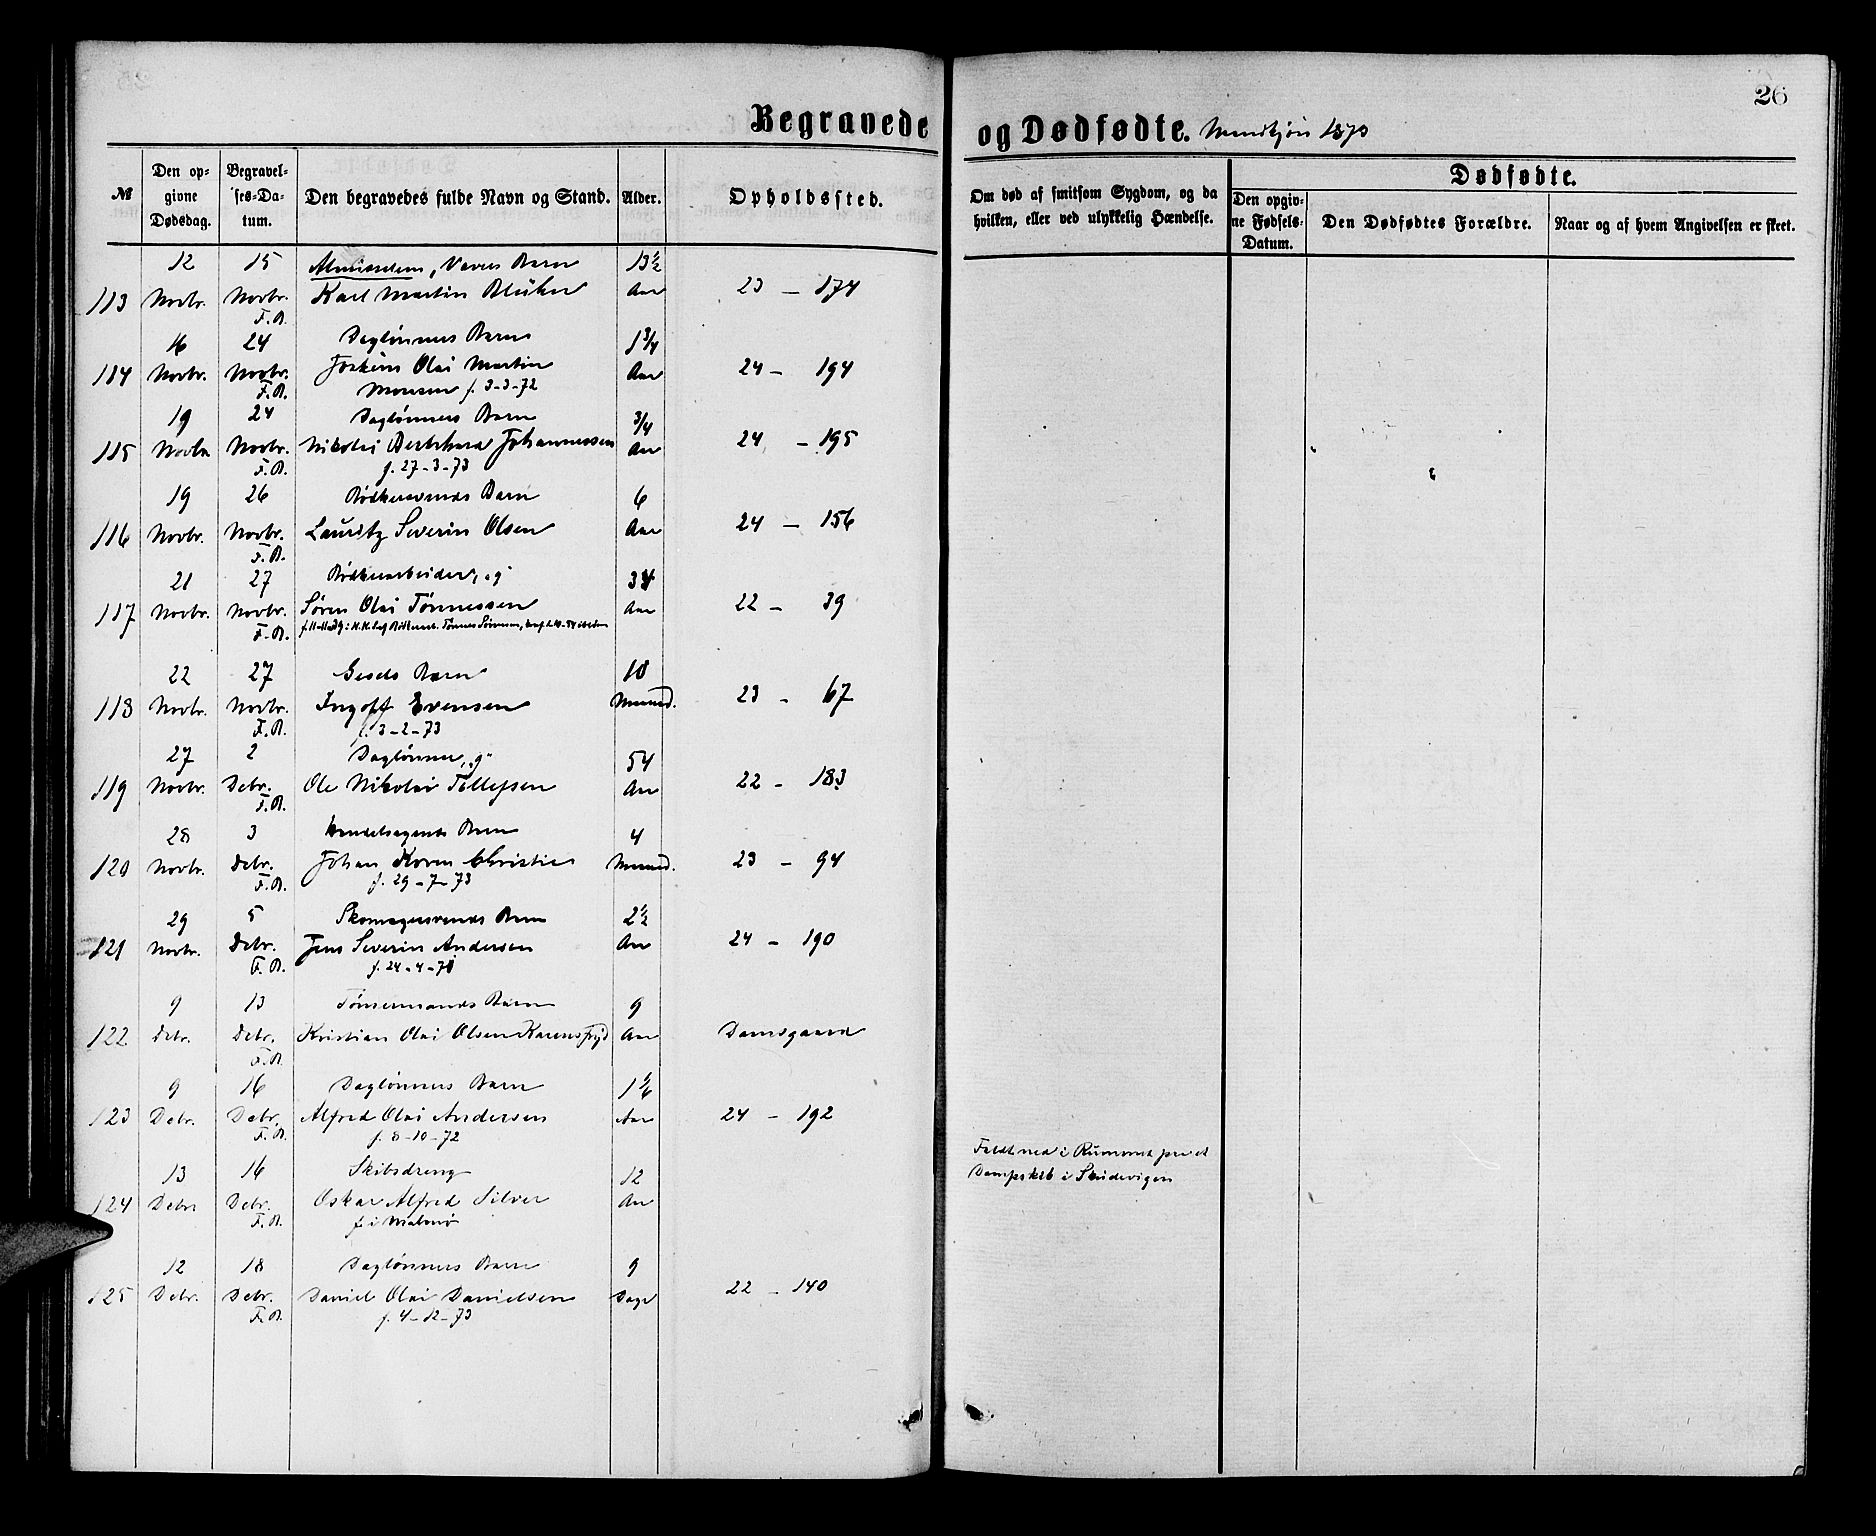 26
Begravede og Dødfødte. Mandkjøn 1873
№
Den opgivne Dødsdag.
Begravelses-Datum.
Den begravedes fulde Navn og Stand.
Alder.
Opholdssted.
Om død af smitsom Sygdom, og da hvilken, eller ved ulykkelig Hændelse.
Dødfødte.
Den opgivne Fødsels-Datum.
Den Dødfødtes Forældre.
Naar og af hvem Angivelsen er skeet.
12 15 Barn 13½
113 Novbr. Novbr. Karl Martin Aar 23 – 174
F.B.
16 24 Daglønners Barn 1¾
114 Novbr. Novbr. Joakim Olai Martin Aar 24 – 194
F.B. Monsen f. 3-3-72
19 24 Daglønners Barn ¾
115 Novbr Novbr. Nikolai Berthard Johannessen Aar 24 – 195
F.B. f. 27-3-73
19 26 Bødkersvends Barn 6
116 Novbr. Novbr. Lauritz Severin Olsen Aar 24 – 156
F.B.
21 27 Bødkerarbeider, "g"
117 Novbr. Novbr. Søren Olai Tønnessen Aar 22 – 39
F.B.
22 27 Barn 10
118 Novbr. Novbr. Ingolf Evensen Maaned. 23 – 67
F.B. f. 3-2-73
27 2 Daglønner, "g" 54
119 Novbr. Debr. Ole Nikolai Tollefsen Aar 22 – 183
F.B.
28 3 Handelsagents Barn 4
120 Novbr. Debr. Johan Koren Christie Maaned. 23 – 94
F.B. f. 29-7-73
29 5 Skomagersvends Barn 2½
121 Novbr. Debr. Jens Severin Andersen Aar 24 – 190
F.B. f. 24-4-71
9 13 Tømermands Barn 9
122 Debr. Debr. Kristian Olai Olsen Karensfryd Aar Damsgaard
F.B.
9 16 Daglønners Barn 1⅙
123 Debr. Debr. Alfred Olai Andersen Aar 24 – 192
F.B. f. 8-10-72
13 16 Skibsdreng 12
124 Debr Debr. Oskar Alfred Silver Aar
F.B. f. i Malmø
Faldt ned i Rummet paa et
Dampskib i Skudevigen
12 18 Daglønners Barn 9
125 Debr. Debr. Daniel Olai Danielsen Dage 22 – 140
F.B. f. 4-12-73